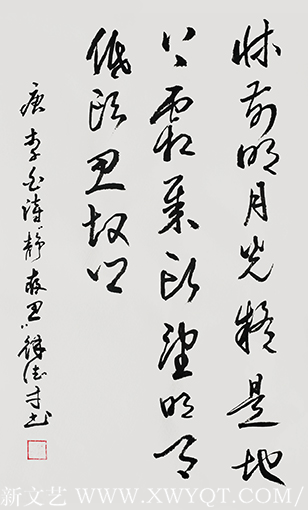 床前明月光疑是地
上霜举头望明月
低头思故乡
唐李白诗静夜思
新文艺 WWW.XWYQT.COM/